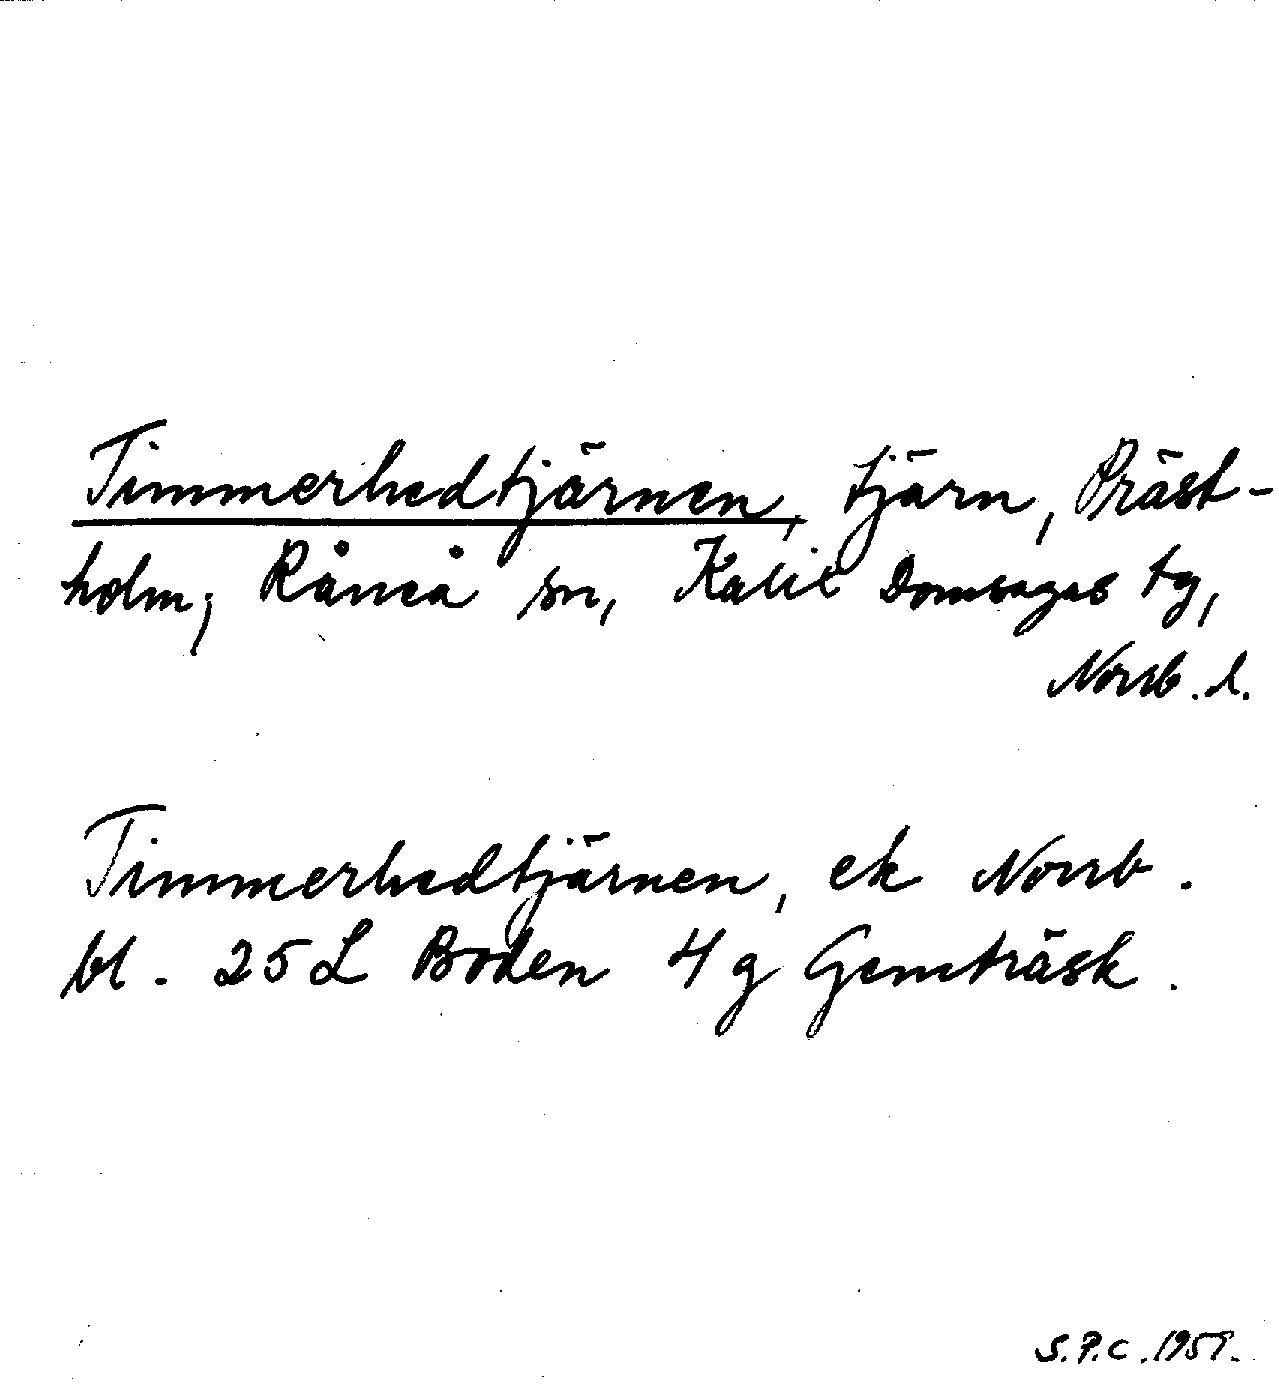 Timmerhedtjärnen, tjärn, Präst-
holm, Råneå sn, Kalix Domsagas tg,
Norrb. l.
Timmerhedtjärnen, ek Norrb.
bl. 25 L Boden 4 g Gemträsk.
S.P.C. 1959.